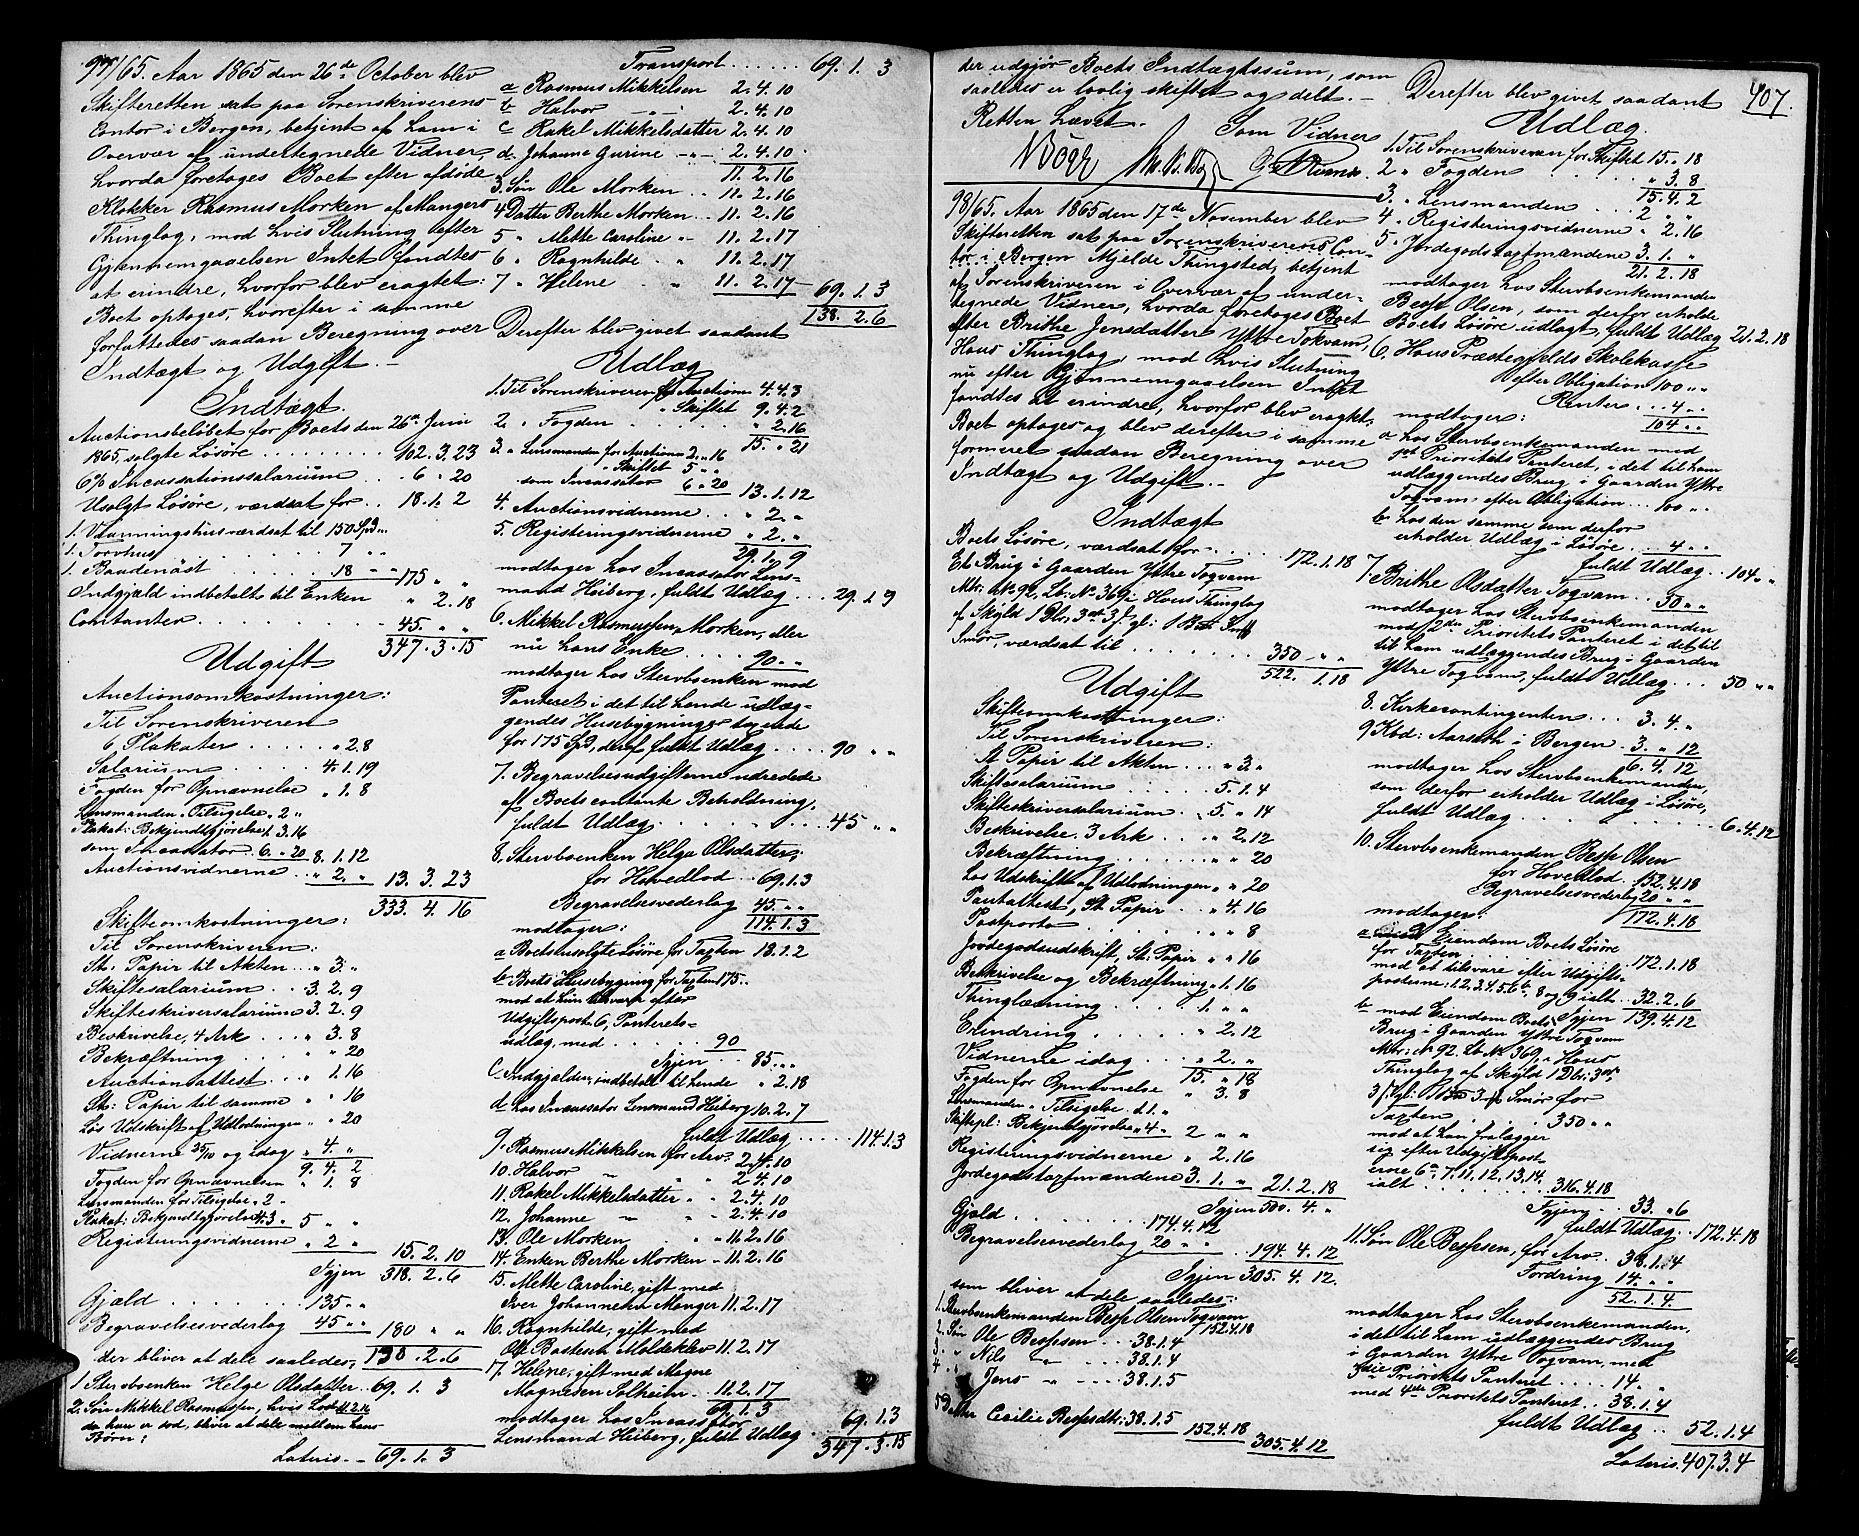 97/65. Aar 1865 den 26de October blev
Skifteretten sat paa Sorenskriverens
Contor i Bergen, betjent af ham i
Overvær af undertegnede Vidner,
hvorda foretoges Boet efter afdøde
Klokker Rasmus Morken af Mangers
Thinglag, mod hvis Slutning efter
Gjennemgaaelsen Intet fandtes
at erindre, hvorfor blev eragtet:
Boet optages, hvorefter i samme
forfattedes saadan Beregning over
Indtægt og Udgift. -
Indtægt.
Auctionsbeløbet for Boets den 26de Juni
1865 solgte Løsøre 102. 3. 23
6% Incassationssalarium 6 " 20
Usolgt Løsøre, værdsat for 18. 1. 2
1 Vaaningshus værdsat til 150 Spd "
1 Torvhus 7 " "
1 Baadenøst 18 " " 175 " "
Indgjæld indbetalt til Enken " 2. 18
Contanter 45. " "
347. 3. 15
Udgift
Auctionsomkostninger:
Til Sorenskriveren
6 Plakater " 2. 8
Salarium 4. 1. 19
Fogden for Opnævnelse " 1. 8
Lensmanden " Tilsigelse " 2 "
Plakat: Bekjendtgjørelse 1. 3. 16
som Incassator 6. " 20 8. 1. 12
Auctionsvidnerne " 2. " 13. 3. 23
333. 4. 16
Skifteomkostninger:
Til Sorenskriveren:
St: Papir til Akten " 3. "
Skiftesalarium 3. 2. 9
Skifteskriversalarium 3. 2. 9
Beskrivelse, 4 Ark " 3. 8
Bekræftning " " 20
Auctionsattest " 1. 16
St: Papir til samme " " 16
Løs Udskrift af Udlodningen " " 20
Vidnerne 25/10 og idag " 4. "
9. 4. 2
Fogden for Opnævnelsen " 1. 8
Lensmanden for Tilsigelse " 2 "
Plakat: Bekjendtgjørelse 4. 3 " 5 " "
Registreringsvidnerne " 2 " 15. 2. 10
Igjen 318. 2. 6
Gjæld 135 " "
Begravelsesvederlag 45 " " 180 " "
der bliver at dele saaledes: 138. 2. 6
1 Stervbsenken Helge Olsdatter 69. 1. 3
2. Søn Mikkel Rasmussen, hvis Lod 11.2.16
da han er død, bliver at dele mellem hans
Børn:
Lateris 69. 1. 3
Transport 69. 1. 3
a Rasmus Mikkelsen 2. 4. 10
b Halvor " 2. 4. 10
c Rakel Mikkelsdatter 2. 4. 10
d. Johanne Gurine 2. 4. 10
11. 2. 16
3 Søn Ole Morken 11. 2. 16
4 Datter Berthe Morken 11. 2. 16
5 " Mette Caroline 11. 2. 17
6 " Ragnhilde 11. 2. 17
7 " Helene 11. 2. 17 69. 1. 3
138. 2. 6
Derefter blev givet saadant
Udlæg
1. Til Sorenskriveren for Auction 4. 4. 3
" Skiftet 9. 4. 2
2. " Fogden " 2. 16
15. " 21
3 " Lensmanden for Auction 2. " 16
" Skiftet 5 " "
som Incassator 6 " 20 13. 1. 12
4. Auctionsvidnerne " 2. "
5. Registreringsvidnerne " 2. "
29. 1. 9
modtager hos Incassator Lens-
mand Heiberg, fuldt Udlæg 29. 1. 9
6. Mikkel Rasmussen Morken, eller
nu hans Enke 90 " "
modtager hos Stervbsenken mod
Panteret i det til hende udlæg-
gendes Husebygninger tagende
for 175 Spd, deraf fuldt Udlæg 90 " "
7. Begravelsesudgifterne udredede
af Boets contante Beholdning,
fuldt Udlæg 45 " "
8. Stervbsenken Helga Olsdatter,
for Hovedlod 69. 1. 3
Begravelsesvederlag 45. " "
114. 1. 3
modtager:
a Boets usolgte Løsøre for Taxten 18. 1. 2
b Boets Husebygning for Taxten 175 "
mod at hun tilsvare efter
Udgiftspost 6, Panterets-
udlæg med 90
Igjen 85. " "
c Indgjælden, indbetalt til hende " 2. 18
d hos Incassator Lensmand Heiberg 10. 2. 7
fuldt Udlæg 114. 1. 3
9. Rasmus Mikkelsen for Arv 2. 4. 10
10. Halvor " 2 4. 10
11. Rakel Mikkelsdatter 2. 4. 10
12. Johanne 2. 4. 10
13. Ole Morken 11. 2. 16
14. Enken Berthe Morken 11. 2. 16
15. Mette Caroline, gift med
Iver Johannesen Manger 11. 2. 17
16. Ragnhilde, gift med
Ole Bastesen Moldeklev 11. 2. 17
17. Helene, gift med Magne
Magnesen Solheim 11. 2. 17
69. 1. 3
modtager hos Incassator
Lensmand Heiberg, fuldt Udlæg 69. 1. 3
347. 3. 15
der udgjør Boets Indtægtssum, som
saaledes er lovlig skiftet og delt. -
Retten hævet. Som Vidner
98/65. Aar 1865 den 17de November blev
Skifteretten sat paa Sorenskriverens Con-
tor i Bergen Mjelde Thingsted, betjent
af Sorenskriveren i Overvær af under-
tegnede Vidner, hvorda foretoges Boet
efter Brithe Jensdatter Yttre Tokvam,
Hous Thinglag, mod hvis Slutning
nu efter Gjennemgaaelsen Intet
fandtes at erindre, hvorfor blev eragtet:
Boet optages og blev derefter i samme
formeret saadan Beregning over
Indtægt og Udgift. -
Indtægt
Boets Løsøre, værdsat for 172. 1. 18
Et Brug i Gaarden Yttre Togvam
Mtr: No 92, Lb: No 369 i Hous Thinglag
af Skyld 1 Dlr. 3 ort 3 s. gl:
Smør, værdsat til 350 " "
522. 1. 18
Udgift
Skifteomkostninger:
Til Sorenskriveren:
St Papir til Akten " 3 "
Skiftesalarium 5. 1. 4
Skifteskriversalarium 5. " 14
Beskrivelse 3 Ark " 2. 12
Bekræftning " " 20
Løs Udskrift af Udlodningen " " 20
Pantattest, St. Papir " 4. 16
Postporto " " 8
Jordegodsudskrift, St. Papir " " 16
Beskrivelse og Bekræftning " 1. 16
Thinglæsning " 1. "
Erindring " 2. 12
Vidnerne idag " 2. "
15. " 18
Fogden for Opnævnelse " 3. 8
Lensmanden " Tilsigelse 1. 1. "
Skiftepl: Bekjendtgjørelse " 4 " 2 " "
Registreringsvidnerne " 2. 16
Jordegodstaxtmændene 3. 1. " 21. 2. 18
Igjen 500. 4. "
Gjæld 174. 4. 12
Begravelsesvederlag 20 " " 194. 4. 12
Igjen 305. 4. 12.
som bliver at dele saaledes:
1. Stervbsenkemanden Besse Olsen Togvam
152. 4. 18
2. Søn Ole Bessesen 38. 1. 4
3. " Nils 38. 1. 4
4 " Jens 38. 1. 5
5 Datter Cecilie Bessesdtr: 38. 1. 5 152. 4. 18 305. 4. 12
407.
Derefter blev givet saadant
Udlæg
1. Til Sorenskriveren for Skiftet 15. " 18
2 " Fogden " 3. 8
15. 4. 2
3. " Lensmanden 2 " "
4 " Registreringsvidnerne " 2. 16
5 " Jordegodstaxtmændene 3. 1. "
21. 2. 18
modtager hos Stervbsenkemanden
Besse Olsen, som derfor erholde
Boets Løsøre udlagt, fuldt Udlæg 21. 2. 18
6. Hous Præstegjelds Skolekasse
efter Obligation 100 " "
Renter 4 " "
modtager: 104 " "
a hos Stervbsenkemanden med
1ste Prioritets Panteret, i det til ham
udlæggendes Brug i Gaarden Yttre
Togvam, efter Obligation 100 " "
b hos den samme som derfor
erholder Udlæg i Løsøre 4 " "
fuldt Udlæg 104 " "
7. Brithe Olsdatter Togvam 50 " "
modtager hos Stervbsenkemanden
mod 2den Prioritets Panteret i det til
til ham udlæggendes Brug i Gaarden
Yttre Togvam, fuldt Udlæg 50 " "
8. Kirkecontingenten 3. 4. "
9 Kbd: Aarseth i Bergen 3. " 12
6. 4. 12
modtager hos Stervbsenkemanden,
som derfor erholder Udlæg i Løsøre,
fuldt Udlæg 6. 4. 12
10. Stervbsenkemanden Besse Olsen
for Hovedlod 152. 4. 18
Begravelsesvederlag 20 " "
modtager: 172. 4. 18
a Eiendom Boets Løsøre
for Taxten 172. 1. 18
mod at tilsvare efter Udgifts-
posterne: 1. 2. 3. 4. 5. 6b, 8 og 9 ialt 32. 2. 6
Igjen 139. 4. 12
b med Eiendom Boets
Brug i Gaarden Yttre Togvam
Mtr: No 92. Lb No 369, i Hous
Thinglag af Skyld 1 Dlr: 3 ort
3 s. gl: Smør for
Taxten 350 " "
mod at ham fralægger
sig efter Udgiftspost-
erne 6a, 7, 11, 12, 13, 14.
ialt 316. 4. 18
Igjen 33. " 6
fuldt Udlæg 172. 4. 18
11. Søn Ole Bessesen, for Arv 38. 1. 4
Fordring 14. " "
52. 1. 4.
modtager hos Stervbsenkemanden,
i det til ham udlæggendes Brug
i Gaarden Yttre Togvam, med
3die Prioritets Panteret 14. " "
med 4de Prioritets Panteret 38. 1. 4
fuldt Udlæg 52. 1. 4
Lateris 407. 3. 4